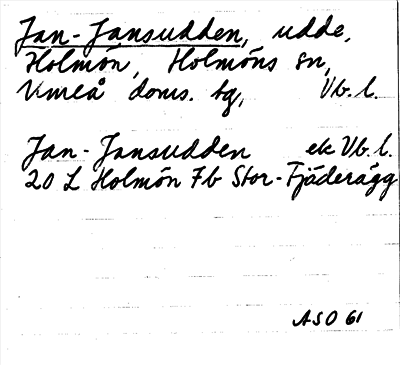 Jan-Jansudden, udde,
Holmön, Holmöns sn,
Umeå doms. tg, Vb. l.
Jan-Jansudden ek Vb. l.
20 L Holmön 7b Stor-Fjäderägg
ASO 61